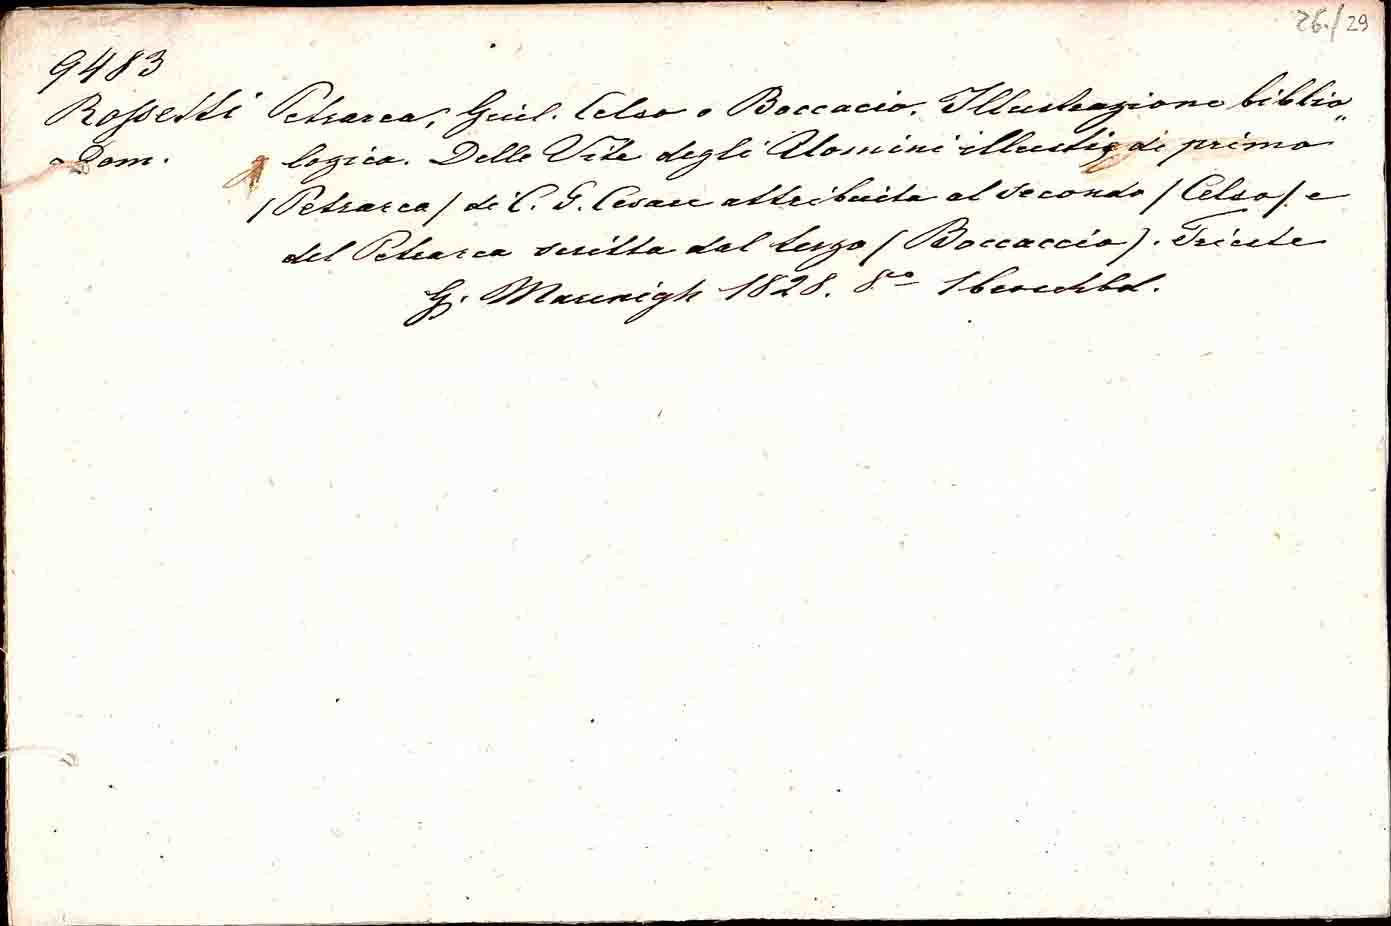 26./29
9483
Rossetti Petrarca, Giul. Celso e Boccacio. Illustrazione biblio„
Dom. logica. Delle Vite degli Uomini illustri di primo
/Petrarca/ di C. G. Cesare attribuita al secondo /Celso/ e
del Petrarca scritta dal terzo (Boccaccio). Trieste
G. Marenigh 1828. 8.o 1 brochbd.